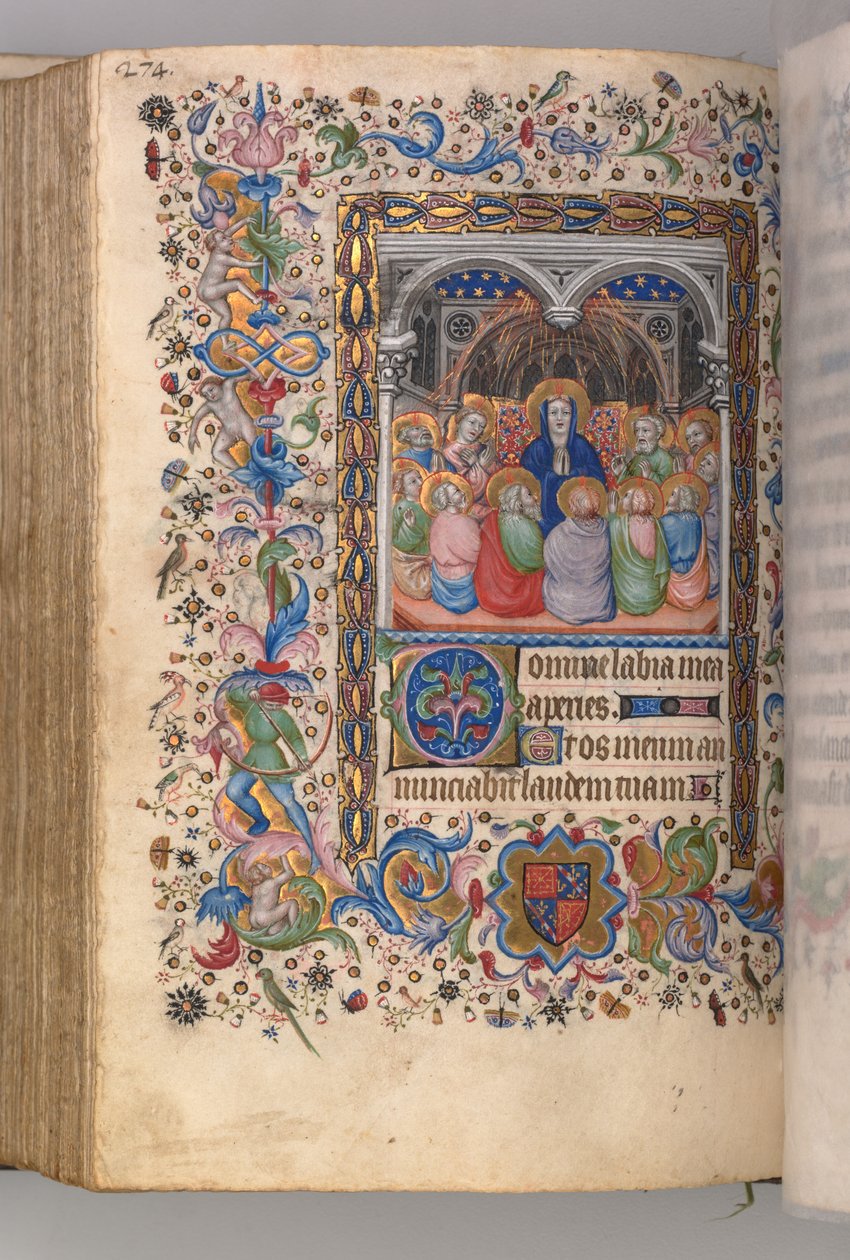 274.
Domine labia mea
aperies.
Et os meum an
nunciabit laudem tuam.